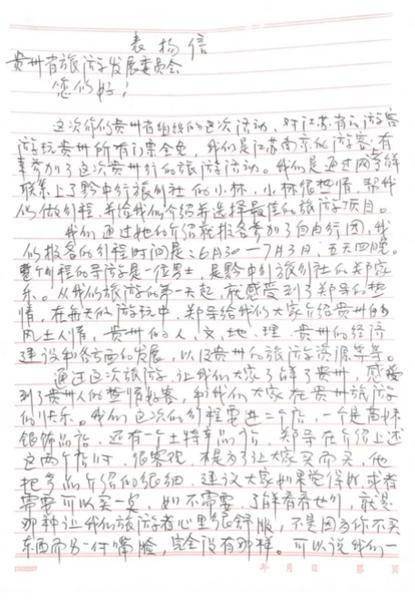 表扬信
贵州省旅游发展委员会
您们好!
这次你们贵州省组织的这次活动,对江苏省的游客
游玩贵州所有门票全免,我们是江苏南京的游客,有
幸参加了这次贵州的旅游活动。我们是通过网络
联系上了黔中行旅行社的小林,小林很热情,帮我
们做行程,并给我们介绍并选择最佳的旅游项目。
我们通过她的介绍就报名参加了自由行团,我
们报名的行程时间是:6月30—7月3日,五天四晚。
整个行程的导游是一位男士,是黔中行旅行社的郑家
乐。从我们旅游的第一天起,就感受到了郑导的热
情,在每天的游玩中,郑导给我们大家介绍贵州的
风土人情,贵州的人、文、地、理,贵州的经济
建设和各方面的发展,以及贵州的旅游资源等等。
通过这次旅游,让我们大家了解了贵州,感受
到了贵州人的热情好客,和我们大家在贵州旅游
的快乐。我们这次的行程要进二个店,一个是苗族
银饰品店,还有一个土特产品店,郑导在介绍上述
这两个店时,很客观,不是为了让大家买而买,他
把产品介绍的很细,建议大家如果觉得好或者
需要可以买一买,如不需要,了解看看也行,就是
那种让我们旅游者心里很舒服,不是因为你不买
东西而另一付嘴脸,完全没有那样。可以说我们一
年 月 日 第 页